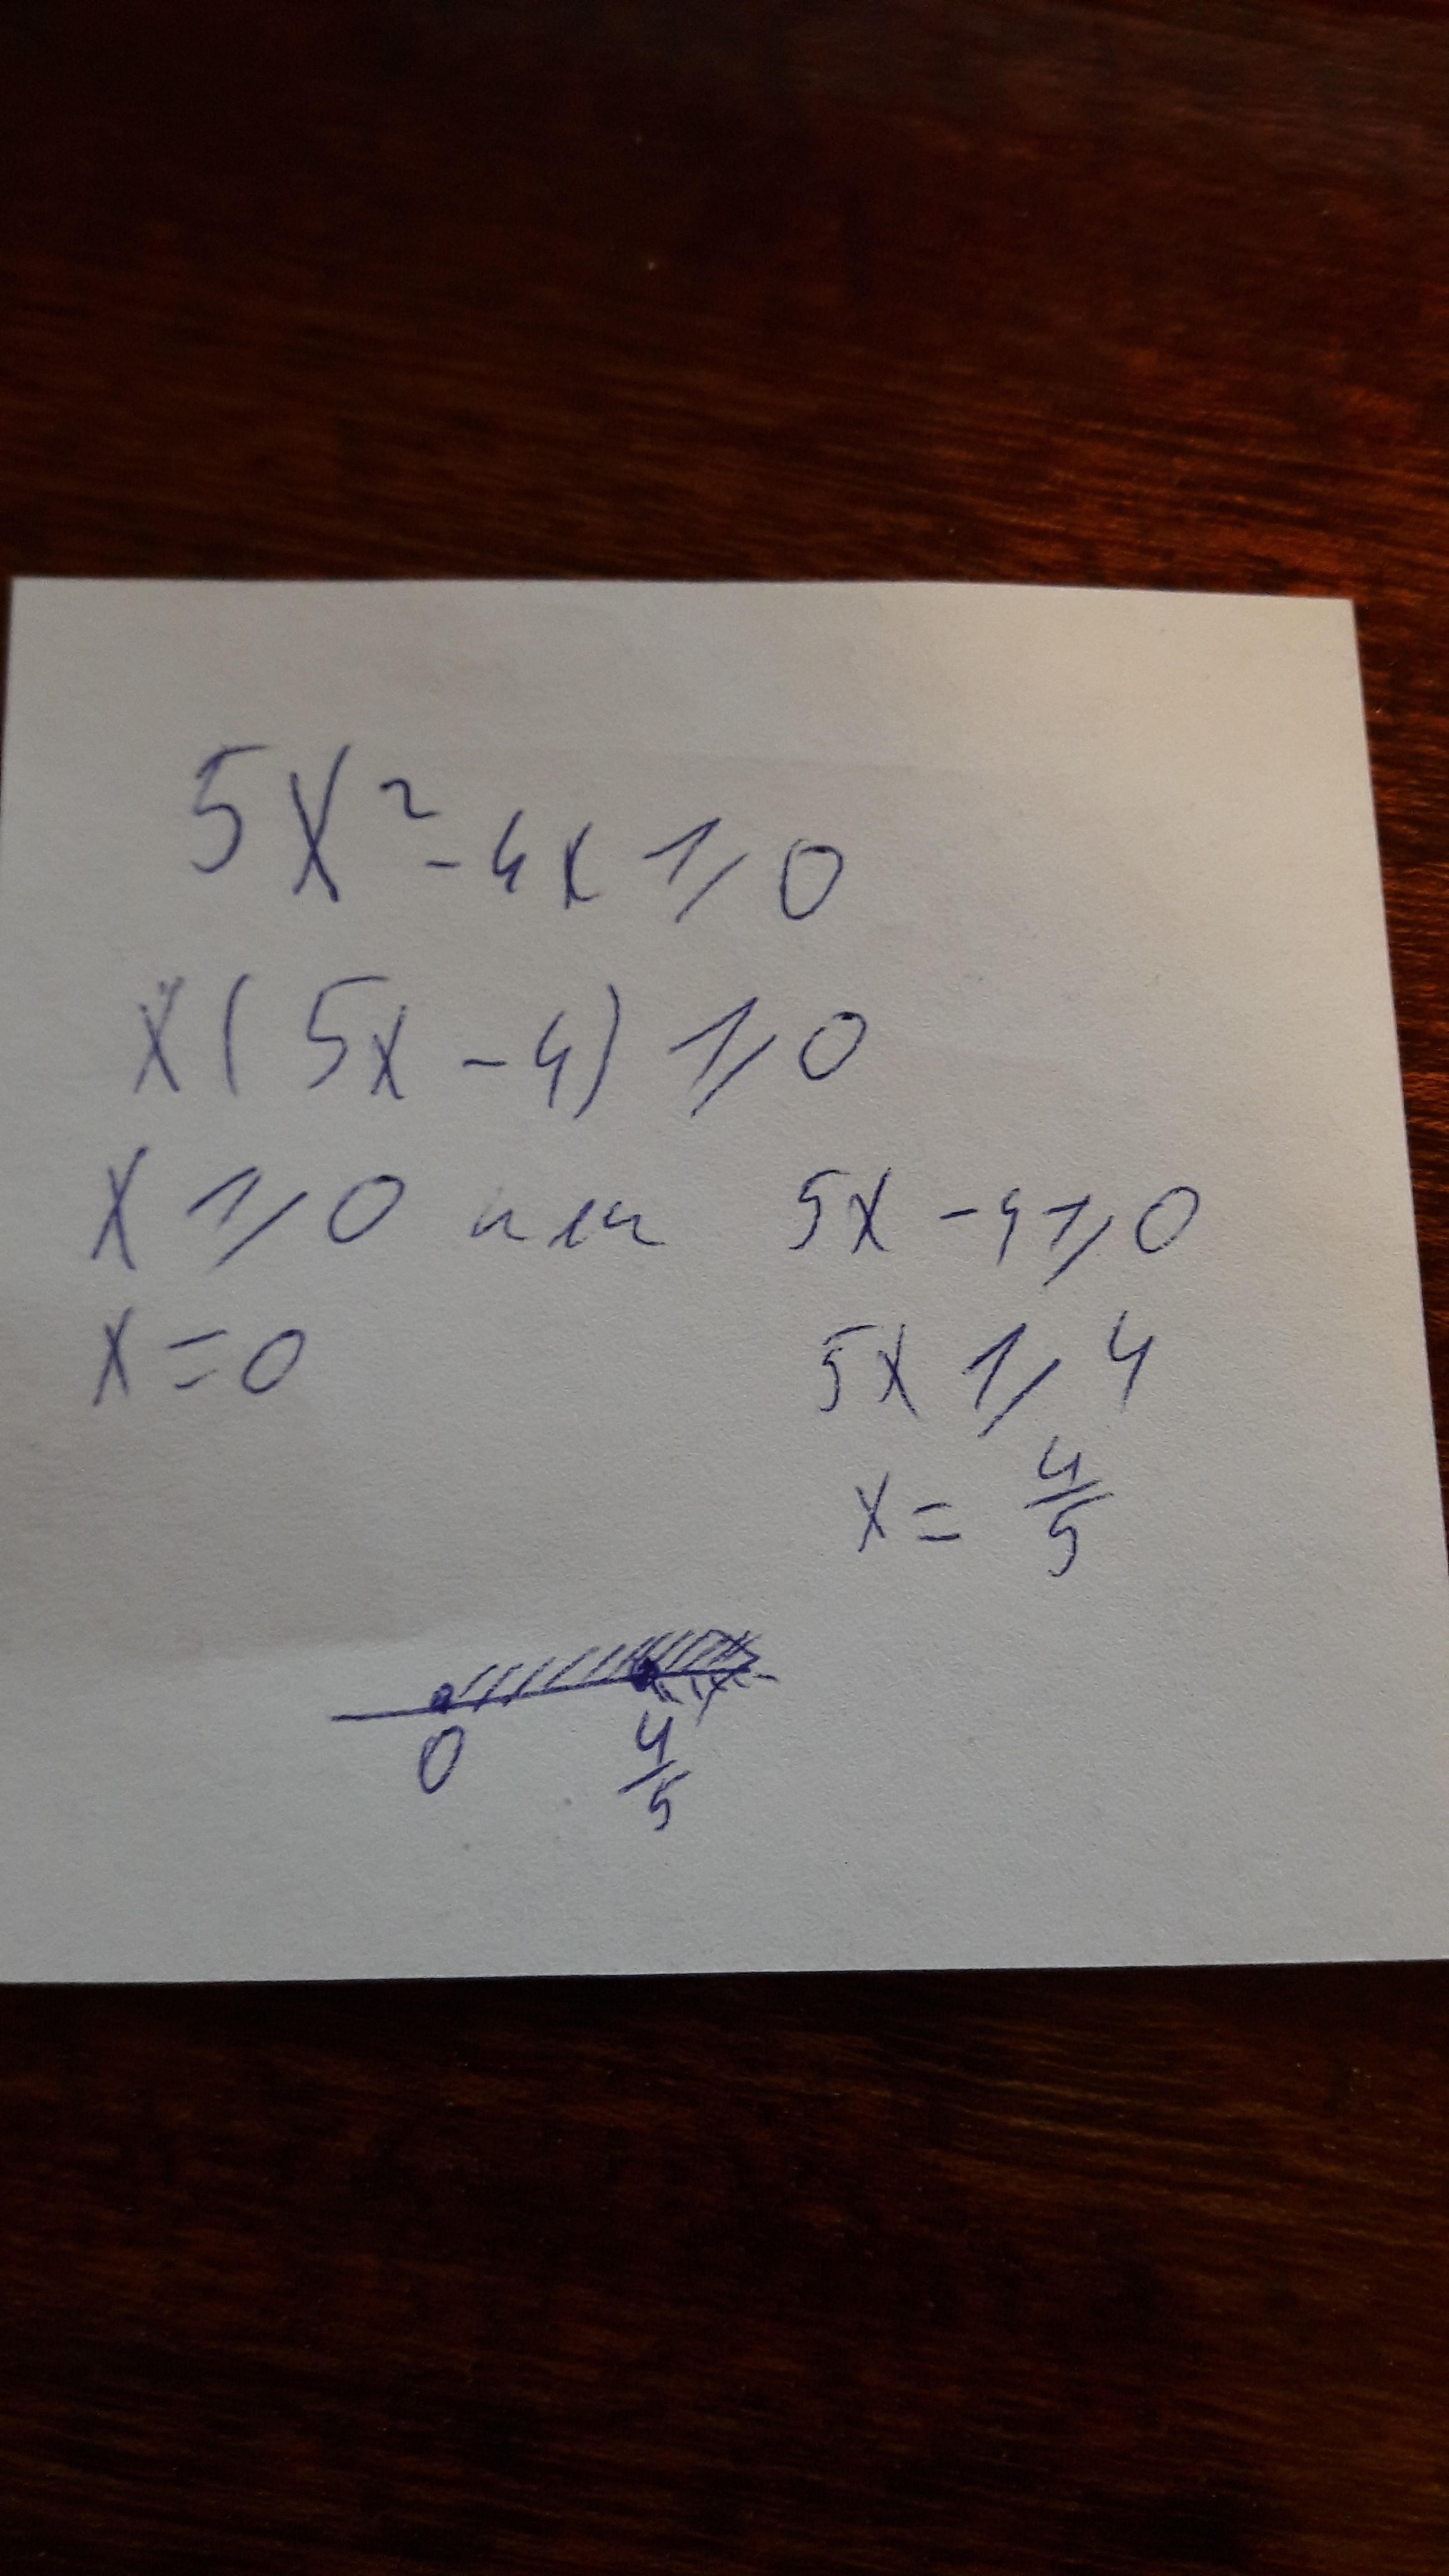 5x² - 4x ⩾ 0
x(5x - 4) ⩾ 0
x ⩾ 0 или 5x - 4 ⩾ 0
x = 0 5x ⩾ 4
x = 4/5
0 4/5